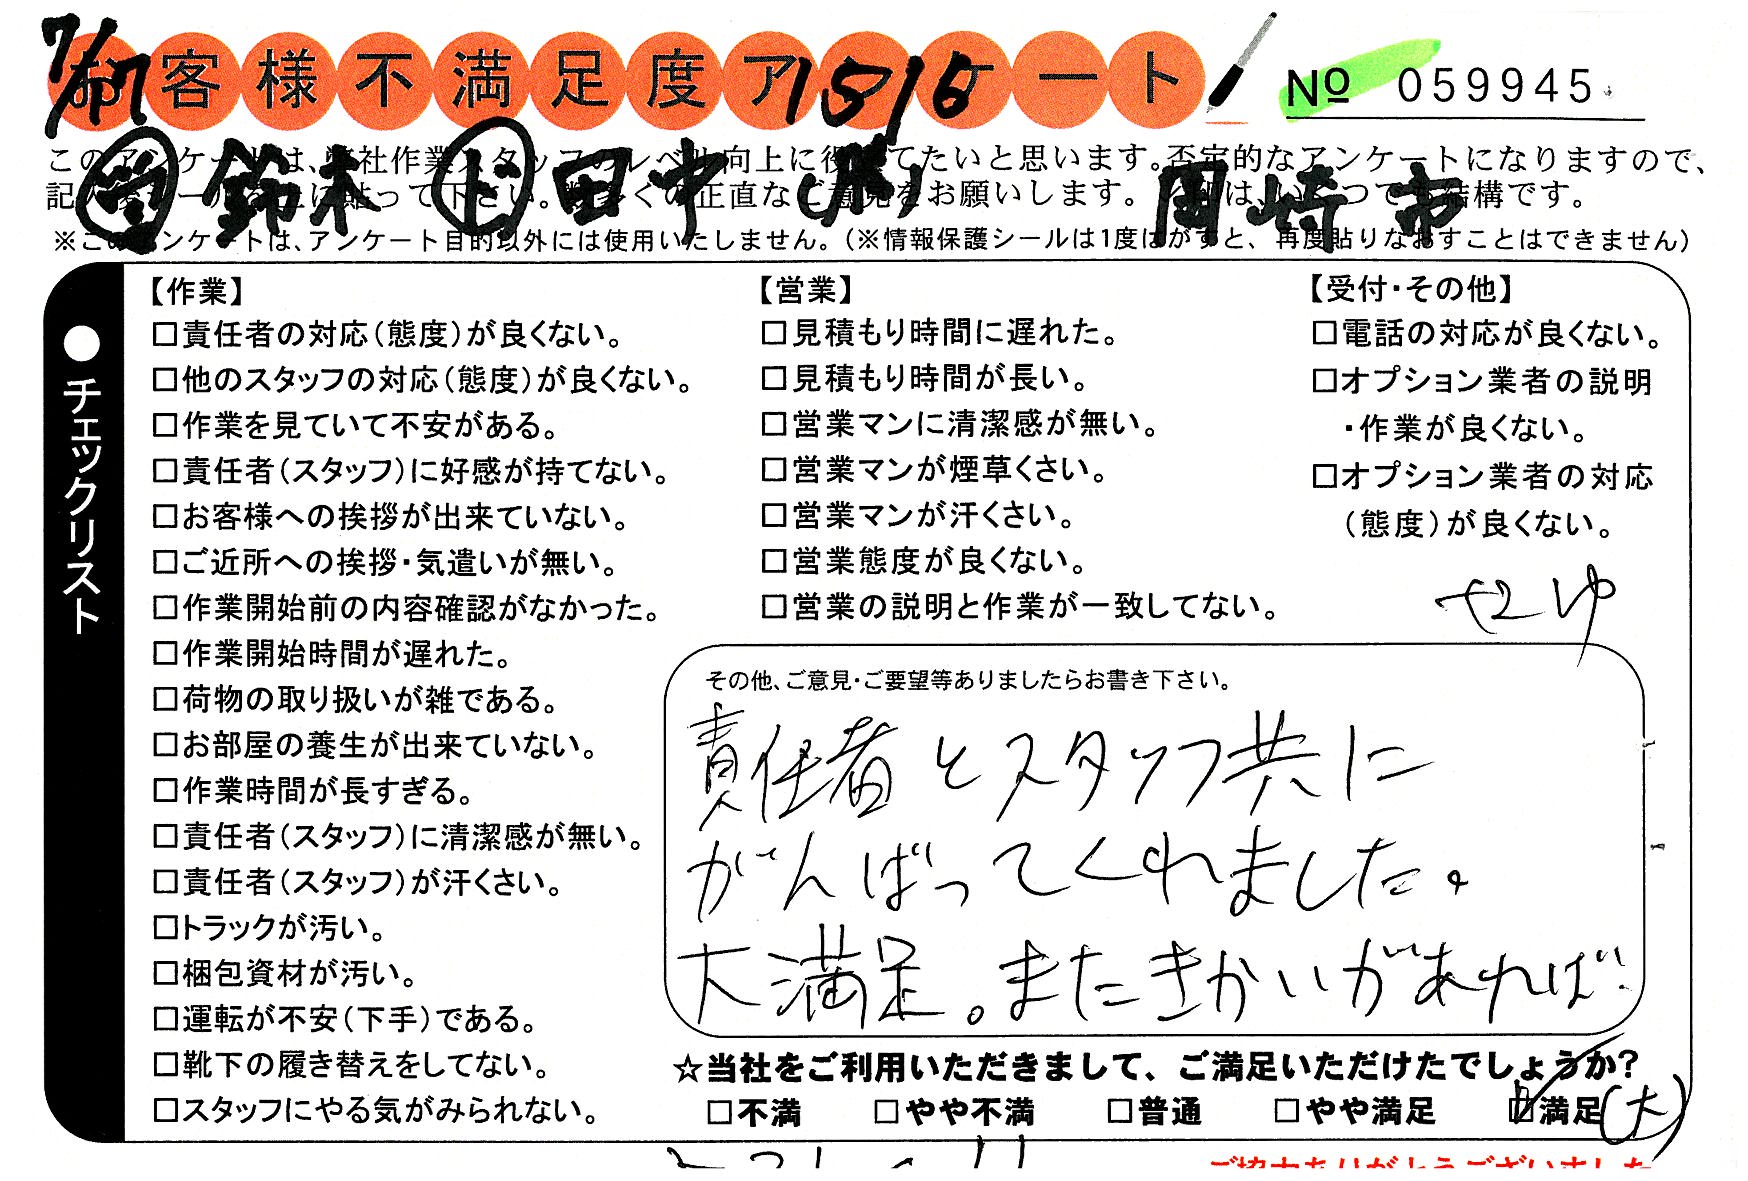 7/17
お客様不満足度アンケート
1515
No 059945
このアンケートは、弊社作業スタッフのレベル向上に役立てたいと思います。否定的なアンケートになりますので、
記入後シールを上に貼って下さい。数多くの正直なご意見をお願いします。
いくつでも結構です。
鈴木 田中 岡崎市
※このアンケートは、アンケート目的以外には使用いたしません。(※情報保護シールは1度はがすと、再度貼りなおすことはできません)
●チェックリスト
【作業】
□責任者の対応(態度)が良くない。
□他のスタッフの対応(態度)が良くない。
□作業を見ていて不安がある。
□責任者(スタッフ)に好感が持てない。
□お客様への挨拶が出来ていない。
□ご近所への挨拶・気遣いが無い。
□作業開始前の内容確認がなかった。
□作業開始時間が遅れた。
□荷物の取り扱いが雑である。
□お部屋の養生が出来ていない。
□作業時間が長すぎる。
□責任者(スタッフ)に清潔感が無い。
□責任者(スタッフ)が汗くさい。
□トラックが汚い。
□梱包資材が汚い。
□運転が不安(下手)である。
□靴下の履き替えをしてない。
□スタッフにやる気がみられない。
【営業】
□見積もり時間に遅れた。
□見積もり時間が長い。
□営業マンに清潔感が無い。
□営業マンが煙草くさい。
□営業マンが汗くさい。
□営業態度が良くない。
□営業の説明と作業が一致してない。
【受付・その他】
□電話の対応が良くない。
□オプション業者の説明
・作業が良くない。
□オプション業者の対応
(態度)が良くない。
その他、ご意見・ご要望等ありましたらお書き下さい。
責任者とスタッフ共に
がんばってくれました。
大満足。またきかいがあれば
☆当社をご利用いただきまして、ご満足いただけたでしょうか?
□不満 □やや不満 □普通 □やや満足 ☑満足(大)
ご協力ありがとうございました